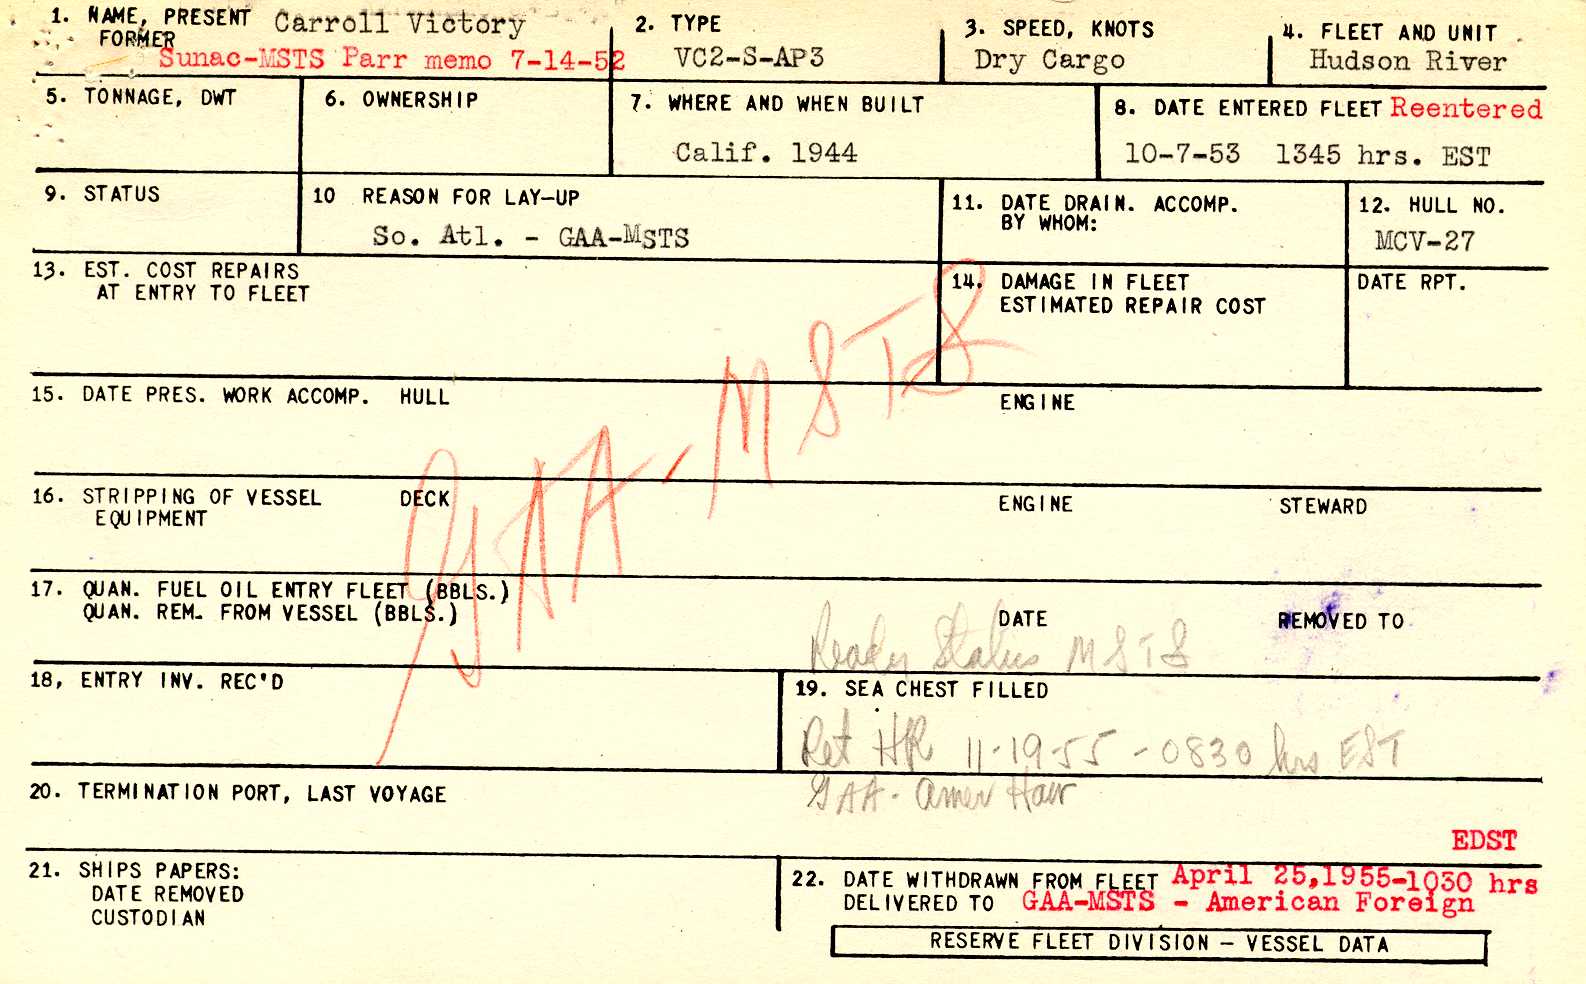 1. NAME, PRESENT Carroll Victory
FORMER
Sunac-MSTS Parr memo 7-14-52
2. TYPE
VC2-S-AP3
3. SPEED, KNOTS
Dry Cargo
4. FLEET AND UNIT
Hudson River
5. TONNAGE, DWT
6. OWNERSHIP
7. WHERE AND WHEN BUILT
Calif. 1944
8. DATE ENTERED FLEET Reentered
10-7-53 1345 hrs. EST
9. STATUS
10 REASON FOR LAY-UP
So. Atl. - GAA-MSTS
11. DATE DRAIN. ACCOMP.
BY WHOM:
12. HULL NO.
MCV-27
13. EST. COST REPAIRS
AT ENTRY TO FLEET
14. DAMAGE IN FLEET
ESTIMATED REPAIR COST
DATE RPT.
GAA-MSTS
15. DATE PRES. WORK ACCOMP. HULL
ENGINE
16. STRIPPING OF VESSEL DECK
EQUIPMENT
ENGINE
STEWARD
17. QUAN. FUEL OIL ENTRY FLEET (BBLS.)
QUAN. REM. FROM VESSEL (BBLS.)
DATE
REMOVED TO
Ready Status MSTS
18, ENTRY INV. REC'D
19. SEA CHEST FILLED
Ret HR 11-19-55 - 0830 hrs EST
GAA - Amer Haw
20. TERMINATION PORT, LAST VOYAGE
EDST
21. SHIPS PAPERS:
DATE REMOVED
CUSTODIAN
22. DATE WITHDRAWN FROM FLEET April 25,1955-1030 hrs
DELIVERED TO GAA-MSTS - American Foreign
RESERVE FLEET DIVISION - VESSEL DATA